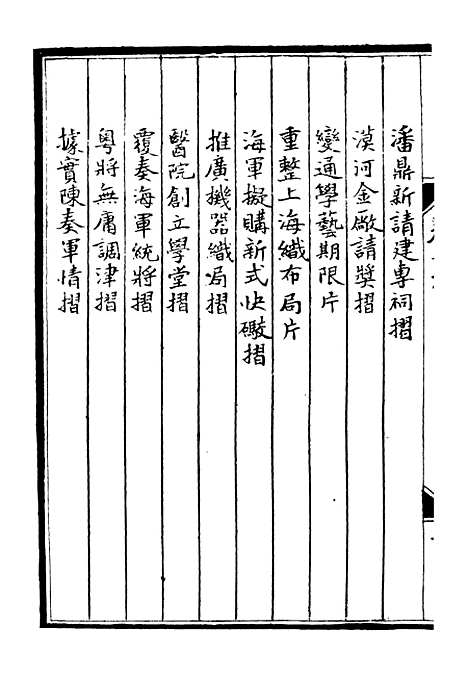 潘鼎新請建專祠摺
漠河金廠請獎摺
變通學藝期限片
重整上海織布局片
海軍擬購新式快礮摺
推廣機器織局摺
醫院創立學堂摺
覆奏海軍統將摺
粵將無庸調津摺
據實陳奏軍情摺